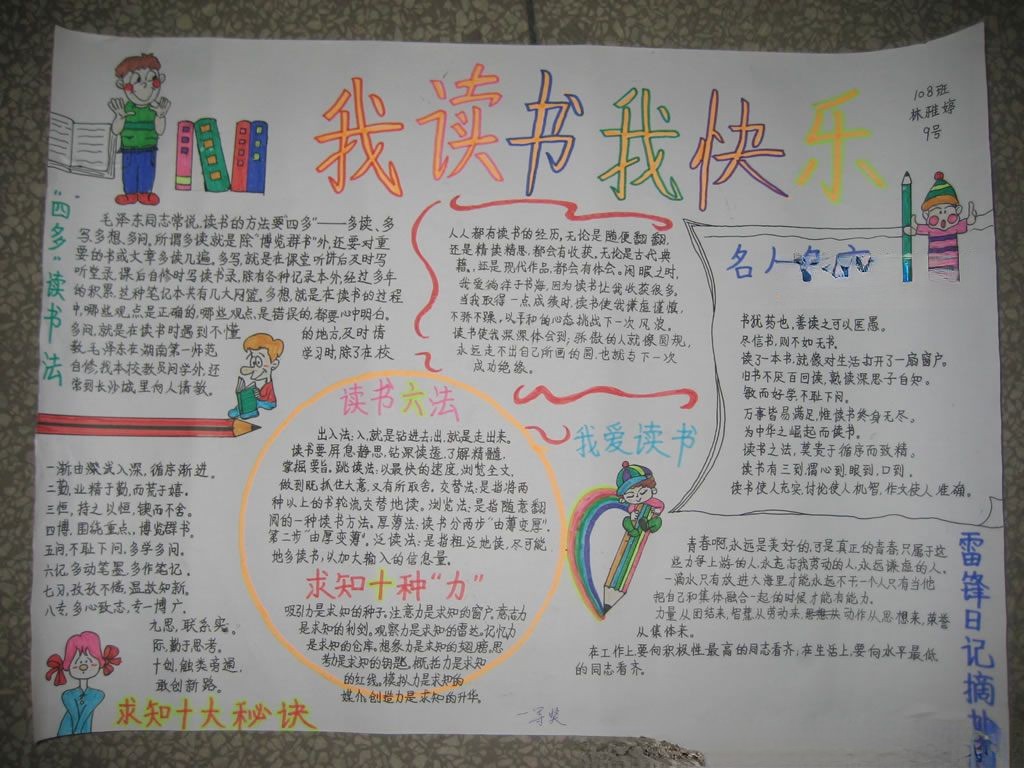 我读书我快乐
108班
林雅婷
9号
“四多”读书法
毛泽东同志常说,读书的方法要“四多”——多读、多
写、多想、多问,所谓多读就是除“博览群书”外,还要对重
要的书或文章多读几遍。多写,就是在课堂听讲后及时写
听堂录,课后自修时写读书录,除有各种记录本外,经过多年
的积累,这种笔记本共有几大网篮。多想,就是在读书的过程
中,哪些观点是正确的,哪些观点是错误的,都要心中明白。
多问,就是在读书时遇到不懂的地方及时请
教,毛泽东在湖南第一师范学习时,除了在校
自修,找本校教员问学外,还
常到长沙城里向人请教。
人人都有读书的经历,无论是随便翻翻,
还是精读精思,都会有收获。无论是古代典
籍,还是现代作品,都会有体会。闲暇之时,
我爱徜徉于书海,因为读书让我收获很多,
当我取得一点成绩时,读书使我谦虚谨慎,
不骄不躁,以平和的心态挑战下一次风浪。
读书使我深深体会到:骄傲的人就像圆规,
永远走不出自己所画的圆,也就与下一次
成功绝缘。
我爱读书
名人名言
书犹药也,善读之可以医愚。
尽信书,则不如无书。
读了一本书,就像对生活打开了一扇窗户。
旧书不厌百回读,熟读深思子自知。
敏而好学,不耻下问。
万事皆易满足,惟读书终身无尽。
为中华之崛起而读书。
读书之法,莫贵于循序而致精。
读书有三到,谓心到,眼到,口到。
读书使人充实,讨论使人机智,作文使人准确。
读书六法
出入法:入,就是钻进去;出,就是走出来。
读书要屏息静思,钻深读透,了解精髓,
掌握要旨。跳读法:以最快的速度,浏览全文,
做到既抓住大意,又有所取舍。交替法:是指将两
种以上的书轮流交替地读。浏览法:是指随意翻
阅的一种读书方法。厚薄法:读书分两步“由薄变厚”。
第二步“由厚变薄”。泛读法:是指粗泛地读,尽可能
地多读书,以加大输入的信息量。
求知十种“力”
吸引力是求知的种子,注意力是求知的窗户,意志力
是求知的利剑。观察力是求知的雷达。记忆力
是求知的仓库。想象力是求知的翅膀,思
考力是求知的钥匙。概括力是求知
的红线。模拟力是求知的
媒介,创造力是求知的升华。
一渐,由浅入深,循序渐进。
二勤,业精于勤,而荒于嬉。
三恒,持之以恒,锲而不舍。
四博,围绕重点,博览群书。
五问,不耻下问,多学多问。
六记,多动笔墨,多作笔记。
七习,孜孜不倦,温故知新。
八专,多心致志,专一博广。
九思,联系实
际,勤于思考。
十创,触类旁通,
敢创新路。
求知十大秘诀
青春啊,永远是美好的,可是真正的青春,只属于这
些力争上游的人,永远忘我劳动的人,永远谦虚的人。
一滴水只有放进大海里才能永远不干,一个人只有当他
把自己和集体融合一起的时候才能有能力。
力量从团结来,智慧从劳动来,动作从思想来,荣誉
从集体来。
在工作上,要向积极性最高的同志看齐,在生活上,要向水平最低
的同志看齐。
雷锋日记摘
一等奖